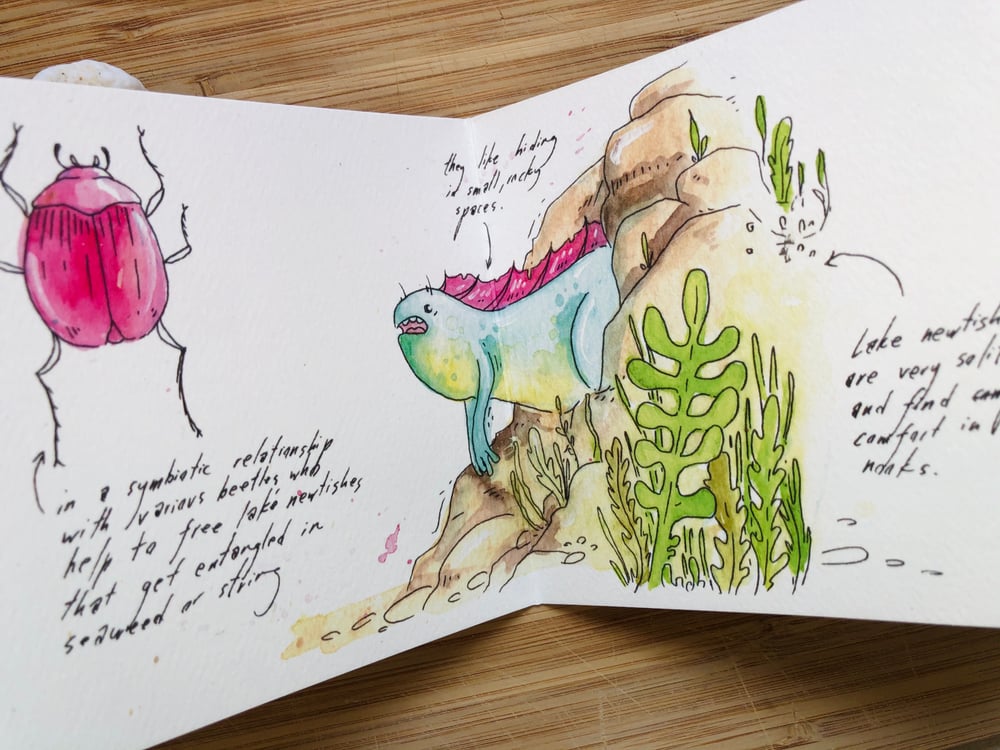 they like hiding
in small, rocky
spaces.
in a symbiotic relationship
with various beetles who
help to free lake newtishes
that get entangled in
seaweed or string
Lake newtish
are very
and find
comfort in
nooks.